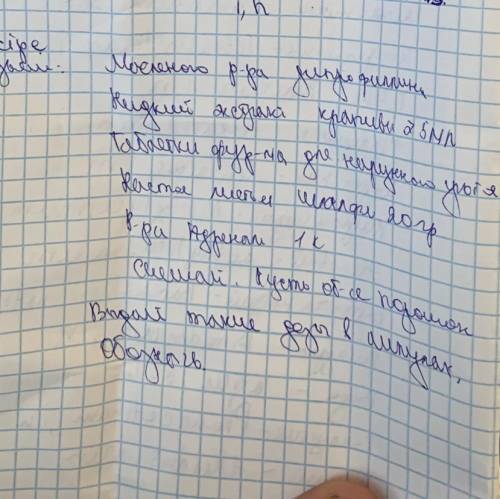 1, h
сіре
Масленого р-ра дипрофиллина
Жидкий экстракт крапивы 25 мл
Таблетки фур-на для наружного упот-я
Настоя листьев шалфея 20 гр
Р-ра Адренал 1 к
Смешай. Пусть об-ся порошок
Выдай такие дозы в ампулах,
Обозначь.